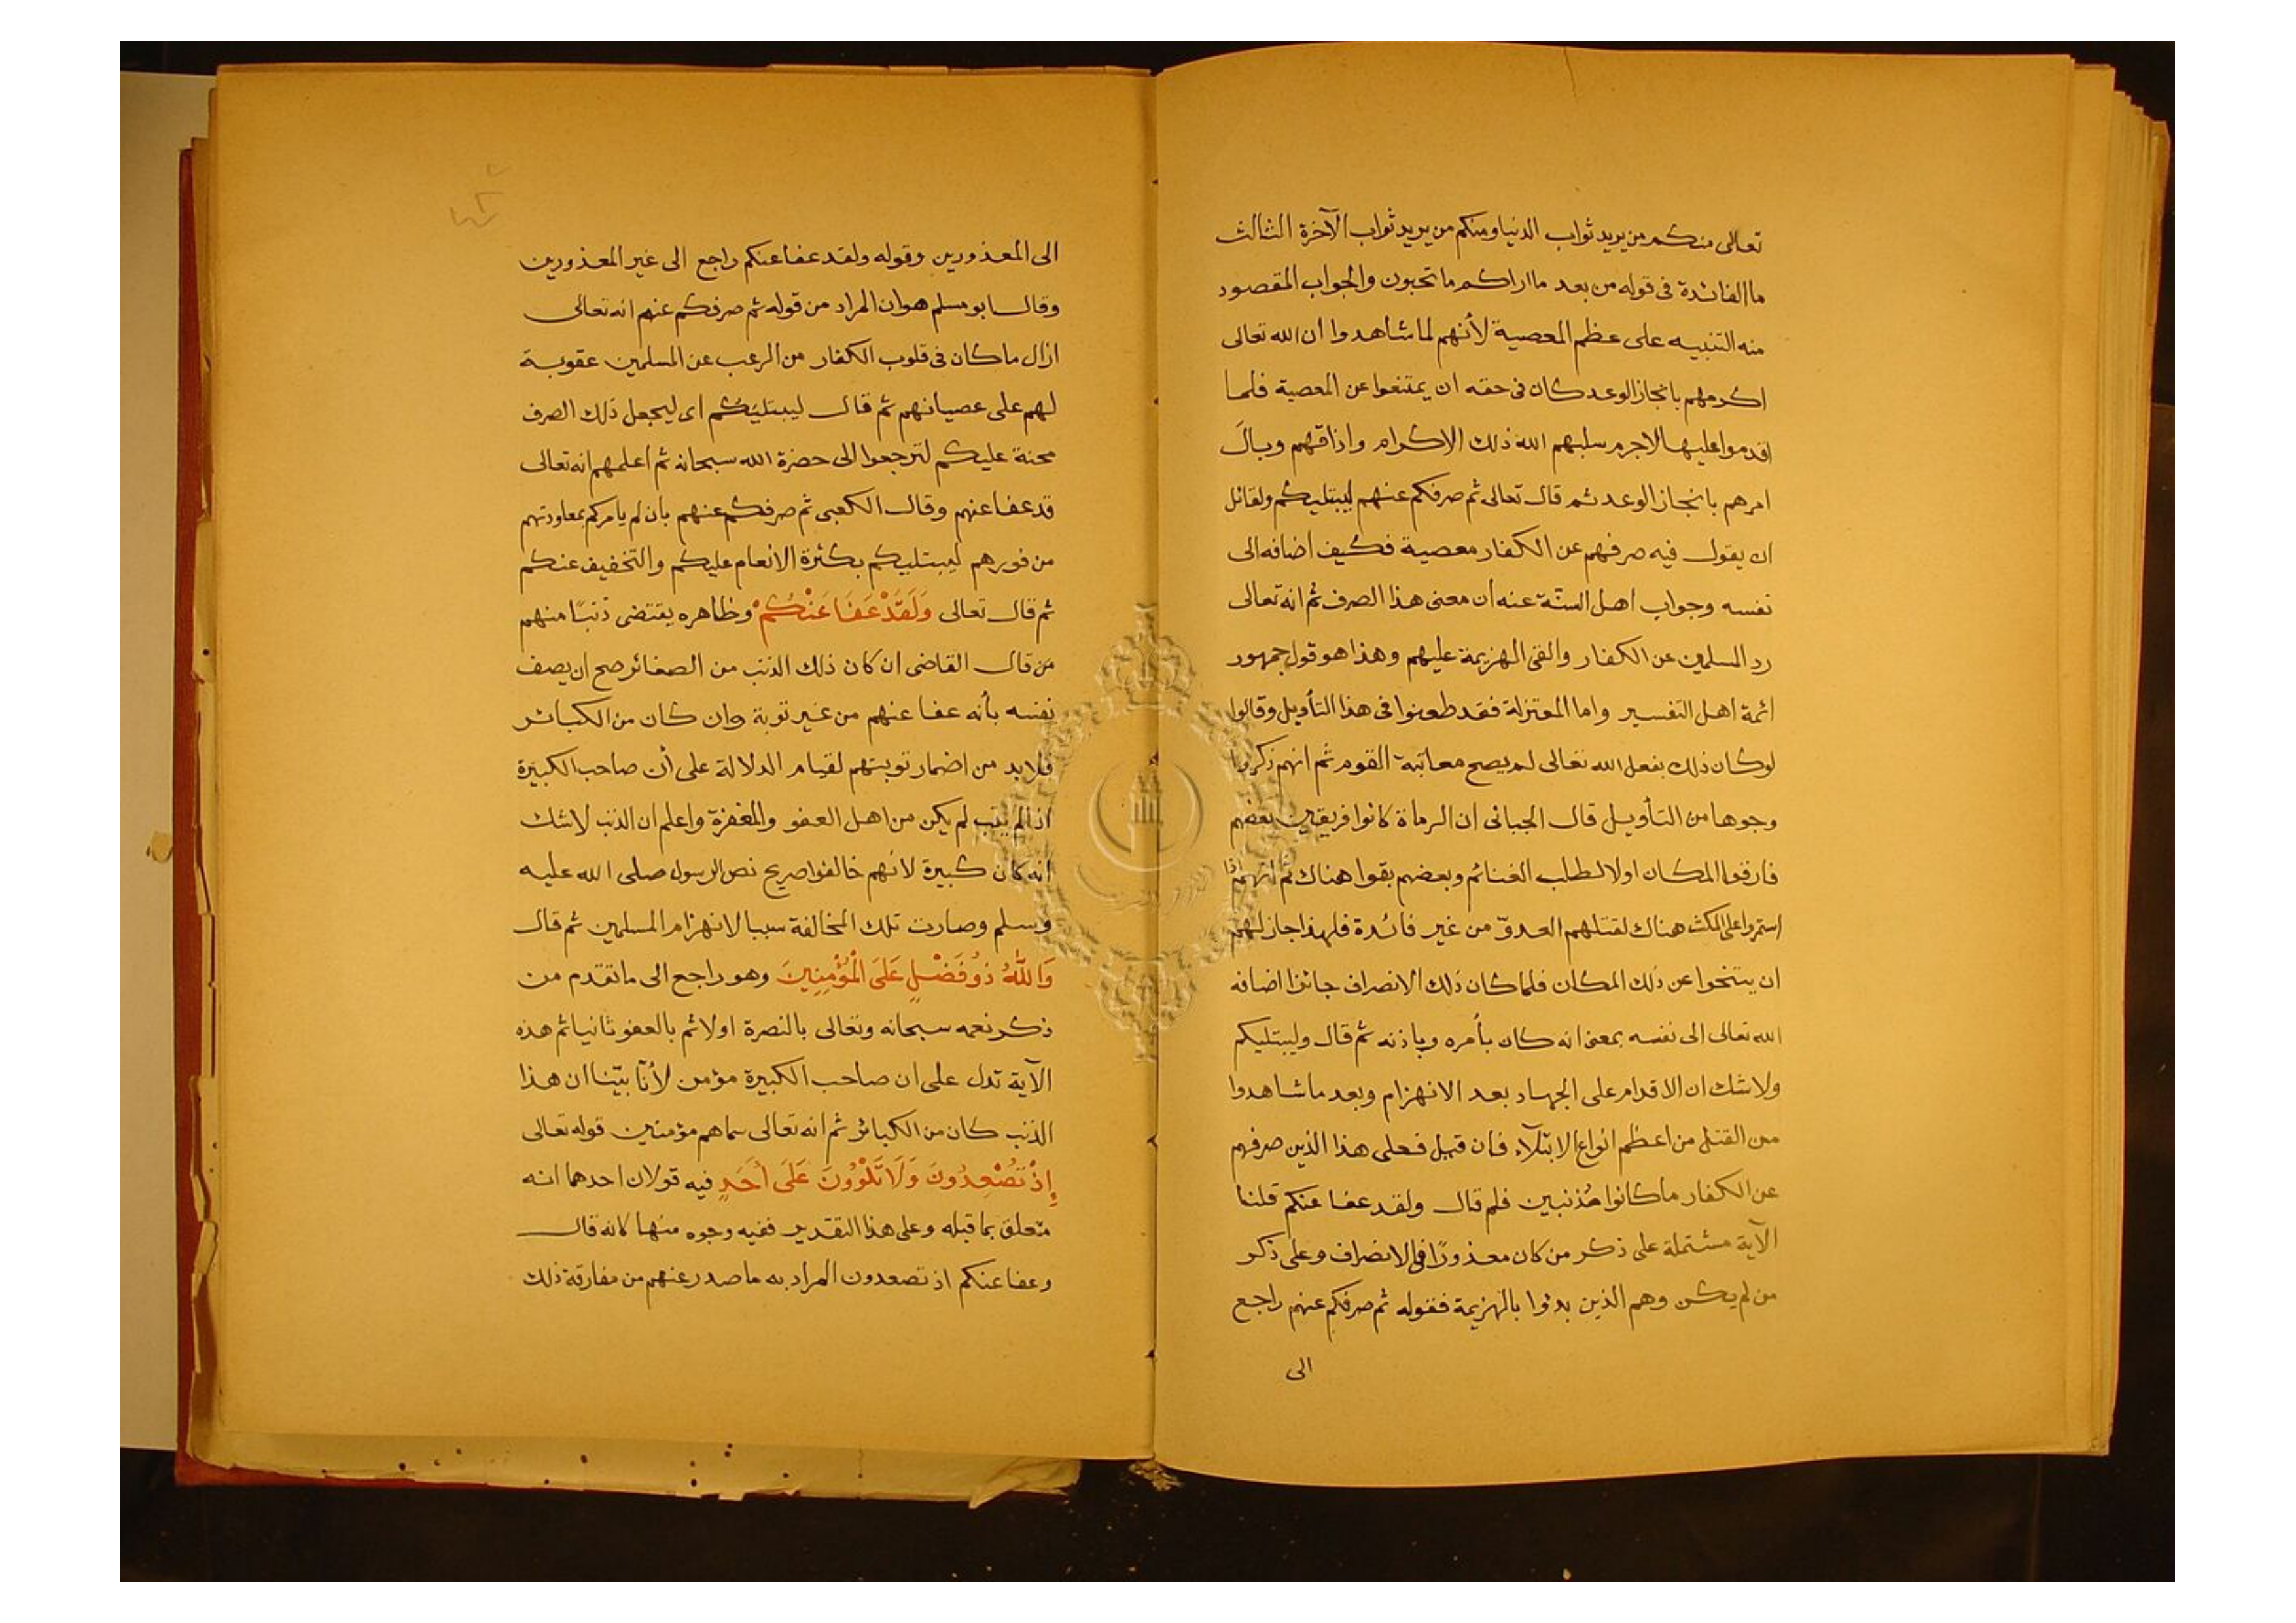 تعالى منكم من يريد ثواب الدنيا ومنكم من يريد ثواب الآخرة الثالث
ما الفائدة فى قوله من بعد ما اراكم ما تحبون والجواب المقصود
منه التنبيه على عظم المعصية لأنهم لما شاهدوا ان الله تعالى
اكرمهم بانجاز الوعد كان فى حقه ان يمتنعوا عن المعصية فلما
اقدموا عليها لاجرم سلبهم الله ذلك الإكرام واذاقهم وبالَ
امرهم بانجاز الوعد ثم قال تعالى ثم صرفكم عنهم ليبتليكم ولقائل
ان يقول فيه صرفهم عن الكفار معصية فكيف اضافه الى
نفسه وجواب اهل السنّة عنه أن معنى هذا الصرف ثم انه تعالى
رد المسلمين عن الكفار والقى الهزيمة عليهم وهذا هو قول جمهور
ائمة اهل التفسير واما المعتزلة فقد طعنوا فى هذا التأويل وقالوا
لو كان ذلك بفعل الله تعالى لم يصح معاتبة القوم ثم انهم ذكروا
وجوها من التأويل قال الجبائى ان الرماة كانوا فريقين بعضهم
فارقوا المكان اولا لطلب الغنائم وبعضهم بقوا هناك ثم انهم اذا
استمروا على المكث هناك لقتلهم العدوّ من غير فائدة فلهذا جاز لهم
ان يتنحوا عن ذلك المكان فلما كان ذلك الانصراف جائزا اضافه
الله تعالى الى نفسه بمعنى انه كان بأمره وباذنه ثم قال وليبتليكم
ولا شك ان الاقدام على الجهاد بعد الانهزام وبعد ما شاهدوا
من القتل من اعظم انواع الابتلآء فان قيل فعلى هذا الذين صرفهم
عن الكفار ما كانوا مُذنبين فلم قال ولقد عفا عنكم قلنا
الآية مشتملة على ذكر من كان معذورًا فى الانصراف وعلى ذكر
من لم يكن وهم الذين بدئوا بالهزيمة فقوله ثم صرفكم عنهم راجع
الى
الى المعذورين وقوله ولقد عفا عنكم راجع الى غير المعذورين
وقال ابو مسلم هو ان المراد من قوله ثم صرفكم عنهم انه تعالى
ازال ما كان فى قلوب الكفار من الرعب عن المسلمين عقوبة
لهم على عصيانهم ثم قال ليبتليَكُم اى ليجعل ذلك الصرف
محنة عليكم لترجعوا الى حضرة الله سبحانه ثم اعلمهم انه تعالى
قد عفا عنهم وقال الكعبى ثم صرفكم عنهم بان لم يامركم بمعاودتهم
من فورهم ليبتليكم بكثرة الانعام عليكم والتخفيف عنكم
ثم قال تعالى وَلَقَدْ عَفَا عَنْكُمْ وظاهره يقتضى ذنبًا منهم
من قال القاضى ان كان ذلك الذنب من الصغائر صح ان يصف
نفسه بأنه عفا عنهم من غير توبة وان كان من الكبائر
فلابد من اضمار توبتهم لقيام الدلالة على أن صاحب الكبيرة
اذا لم يتب لم يكن من اهل العفو والمغفرة واعلم ان الذنب لا شك
انه كان كبيرة لانهم خالفوا صريح نص الرسول صلى الله عليه
وسلم وصارت تلك المخالفة سببا لانهزام المسلمين ثم قال
وَاللّٰهُ ذُو فَضْلٍ عَلَى الْمُؤْمِنِينَ وهو راجع الى ما تقدم من
ذكر نعمه سبحانه وتعالى بالنصرة اولا ثم بالعفو ثانيا ثم هذه
الآية تدل على ان صاحب الكبيرة مؤمن لأنّا بيّنا ان هذا
الذنب كان من الكبائر ثم انه تعالى سماهم مؤمنين قوله تعالى
إِذْ تُصْعِدُونَ وَلَا تَلْوُونَ عَلَى أَحَدٍ فيه قولان احدهما انه
متعلق بما قبله وعلى هذا التقدير ففيه وجوه منها كانه قال
وعفا عنكم اذ تصعدون المراد به ما صدر عنهم من مفارقة ذلك